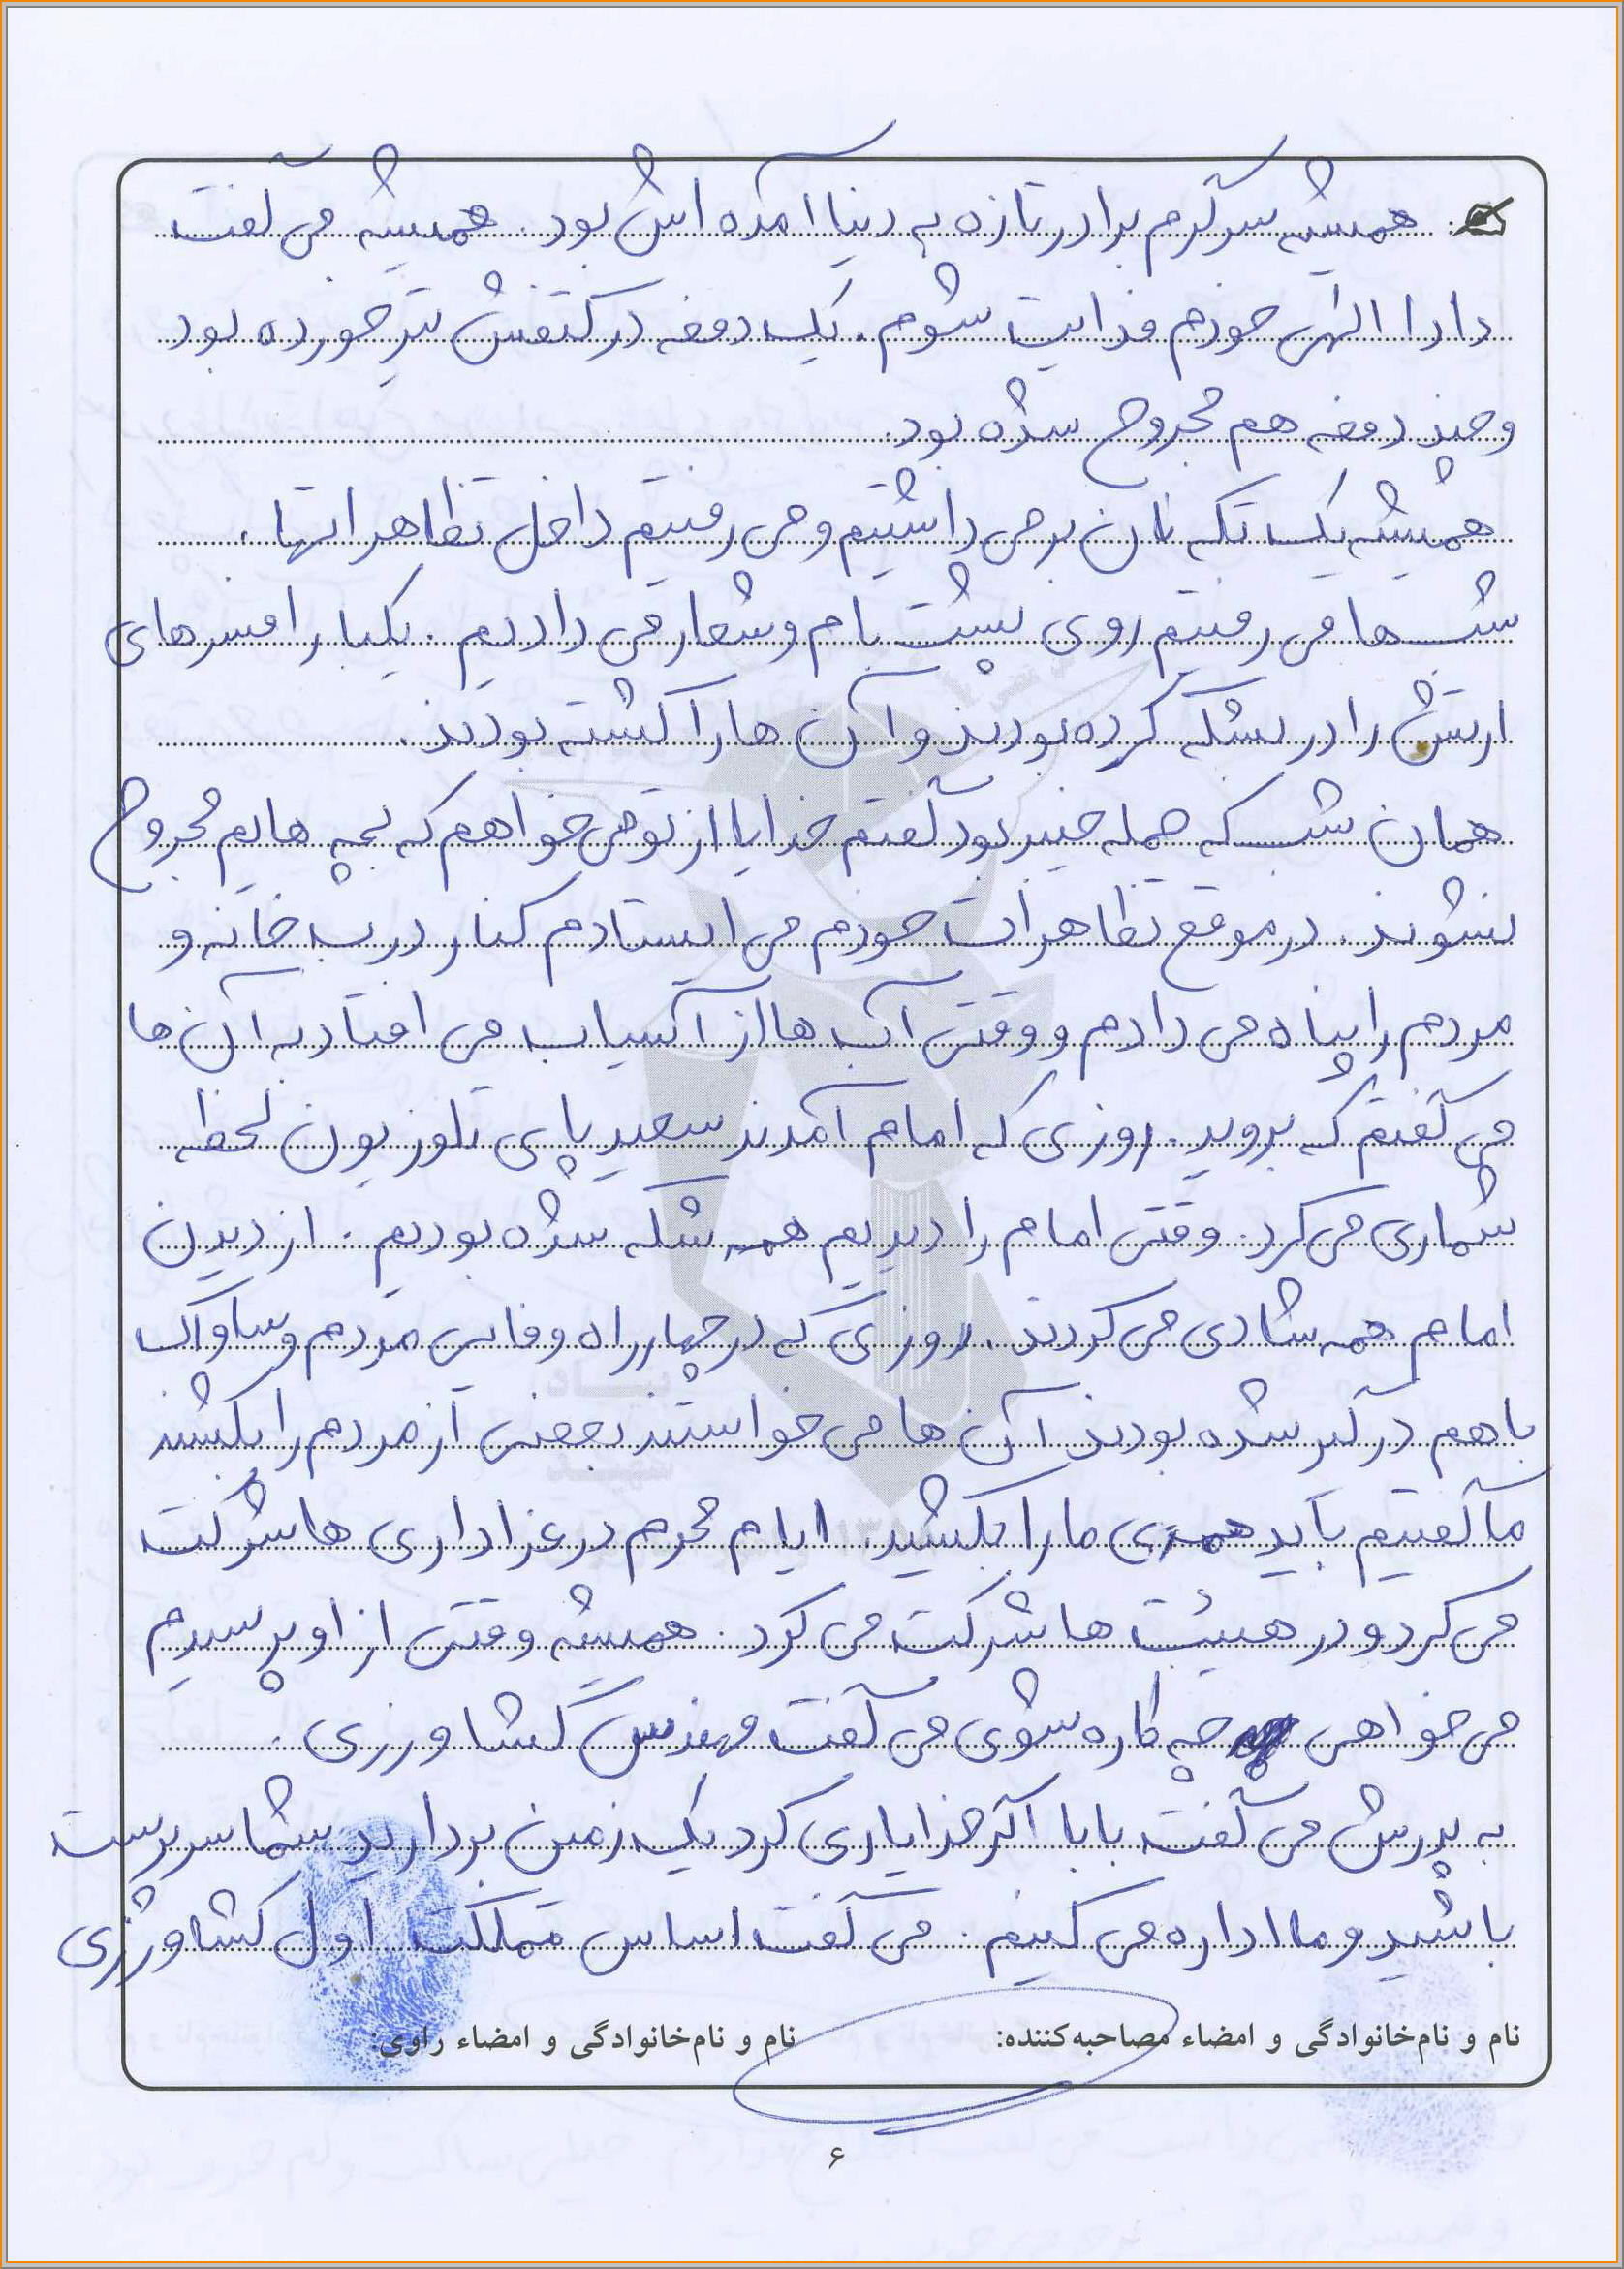 همیشه سرگرم برادر تازه به دنیا آمده اش بود. همیشه می گفت
دادا الهی خودم فدایت شوم. یک دفعه در کتفش تیر خورده بود
و چند دفعه هم مجروح شده بود.
همیشه یک تکه نان بر می داشتیم و می رفتیم داخل تظاهراتها.
شب ها می رفتیم روی پشت بام و شعار می دادیم. یکبار افسرهای
ارتش را در بشکه کرده بودند و آن ها را کشته بودند.
همان شب که حمله خیبر بود گفتم خدایا از تو می خواهم که بچه هایم مجروح
نشوند. در موقع تظاهرات خودم می ایستادم کنار درب خانه و
مردم را پناه می دادم و وقتی آب ها از آسیاب می افتاد به آن ها
می گفتم که بروید. روزی که امام آمدند سعید پای تلوزیون لحظه
شماری می کرد. وقتی امام را دیدیم همه شکه شده بودیم. از دیدن
امام همه شادی می کردند. روزی که در چهارراه وفایی مردم و ساواک
با هم درگیر شده بودند آن ها می خواستند بعضی از مردم را بکشند
ما گفتیم باید همه ی ما را بکشید. ایام محرم در عزاداری ها شرکت
می کرد و در هیئت ها شرکت می کرد. همیشه وقتی از او پرسیدم
می خواهی چه کاره شوی می گفت مهندس کشاورزی.
به پدرش می گفت بابا اگر خدا یاری کرد یک زمین بردارید شما سرپرست
باشید و ما اداره می کنیم. می گفت اساس مملکت اول کشاورزی
نام و نام‌خانوادگی و امضاء مصاحبه‌کننده: نام و نام‌خانوادگی و امضاء راوی:
۶